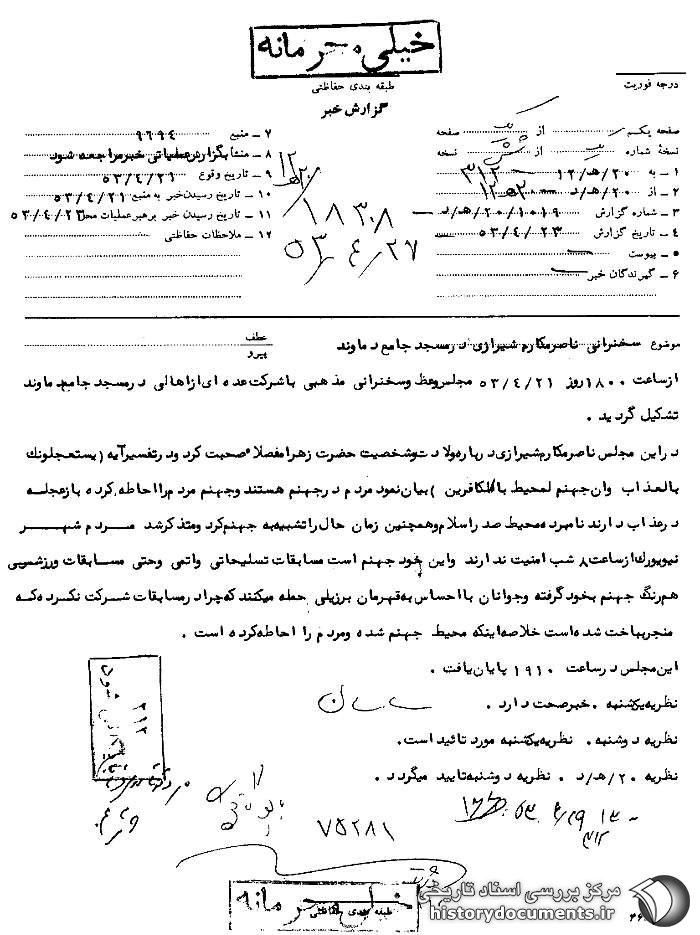 خیلی محرمانه
طبقه بندی حفاظتی
درجه فوریت
گزارش خبر
صفحه یکم از یک صفحه
نسخهٔ شماره یک از شش نسخه
۱ – به ۲۰/هـ/۱۲ ۳۱۲
۲ – از ۲۰/هـ/د
۳ – شماره گزارش ۲۰/۱۰۱۹/هـ/د
۴ – تاریخ گزارش ۵۳/۴/۲۳
۵ – پیوست
۶ – گیرندگان خبر
۷ – منبع ۹۶۹۴
۸ – منشأ بگزارش عملیاتی خبر مراجعه شود
۹ – تاریخ وقوع ۵۳/۴/۲۱
۱۰ – تاریخ رسیدن خبر به منبع ۵۳/۴/۲۱
۱۱ – تاریخ رسیدن خبر برهبر عملیات محل ۵۳/۴/۲۳
۱۲ – ملاحظات حفاظتی
۱۸۳۰۸
۵۳/۴/۲۷
عطف
پیرو
موضوع سخنرانی ناصر مکارم شیرازی در مسجد جامع دماوند
از ساعت ۱۸۰۰ روز ۵۳/۴/۲۱ مجلس وعظ و سخنرانی مذهبی با شرکت عده ای از اهالی در مسجد جامع دماوند
تشکیل گردید .
در این مجلس ناصر مکارم شیرازی درباره ولادت و شخصیت حضرت زهرا مفصلا صحبت کرد و در تفسیر آیه ( یستعجلونك
بالعذاب وان جهنم لمحیط بالکافرین ) بیان نمود مردم در جهنم هستند و جهنم مردم را احاطه کرده باز عجله
در عذاب دارند نامبرده محیط صدر اسلام و همچنین زمان حال را تشبیه به جهنم کرد و متذکر شد مردم شهر
نیویورك از ساعت ۸ شب امنیت ندارند و این خود جهنم است مسابقات تسلیحاتی و اتمی وحتی مسابقات ورزشی
هم رنگ جهنم بخود گرفته و جوانان با احساس به قهرمان برزیلی حمله میکنند که چرا در مسابقات شرکت نکرده که
منجر بباخت شده است خلاصه اینکه محیط جهنم شده و مردم را احاطه کرده است .
این مجلس در ساعت ۱۹۱۰ پایان یافت .
نظریه یکشنبه . خبر صحت دارد .
نظریه دوشنبه . نظریه یکشنبه مورد تائید است.
نظریه ۲۰/هـ/د . نظریه دوشنبه تایید میگردد .
۳۱۲
۷۵۲۸۱
خیلی محرمانه
طبقه بندی حفاظتی
مرکز بررسی اسناد تاریخی
historydocuments.ir